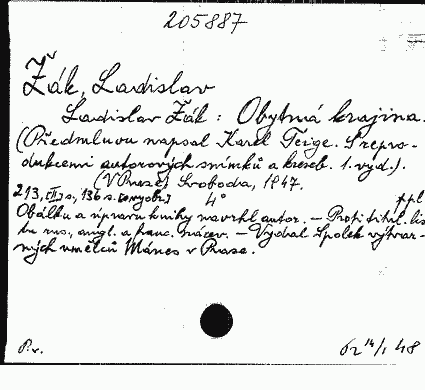 205887
Žák, Ladislav
Ladislav Žák : Obytná krajina.
(Předmluvu napsal Karel Teige. S repro-
dukcemi autorových snímků a kreseb. 1. vyd.).
(V Praze) Svoboda, 1947.
213, [II] s., 136 s. [vyobr.] 4° ppl
Obálku a úpravu knihy navrhl autor. — Proti titul. lis-
tu rus., angl. a franc. název. — Vydal Spolek výtvar-
ných umělců Mánes v Praze.
P.v. 62 14/1 48